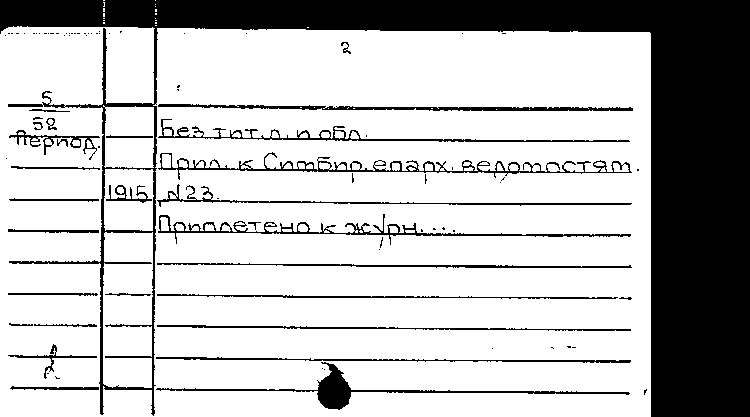 2
5
52
Период.
Без тит. л. и обл.
Прил. к Симбир. епарх. ведомостям.
1915 №23.
Приплетено к журн. ...